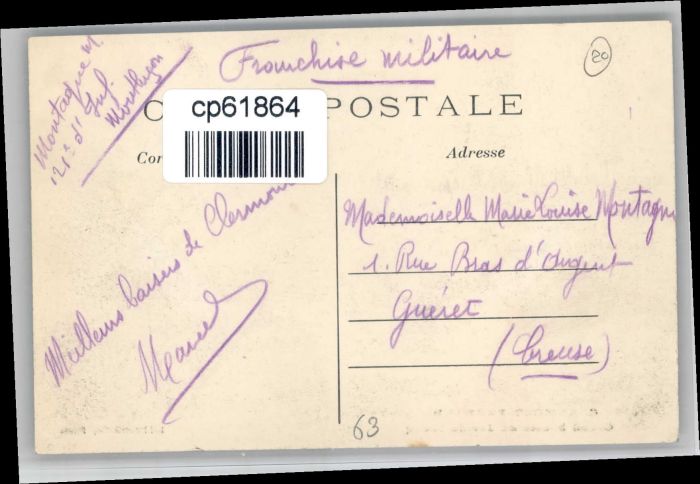 Franchise militaire
20
Montague M
121e d'Inf.
Montluçon
cp61864
C POSTALE
Cor
Adresse
Meilleurs baisers de Clermon
Marcel
Mademoiselle Marie Louise Montagu
1. Rue Bras d'Argent
Guéret
(Creuse)
63